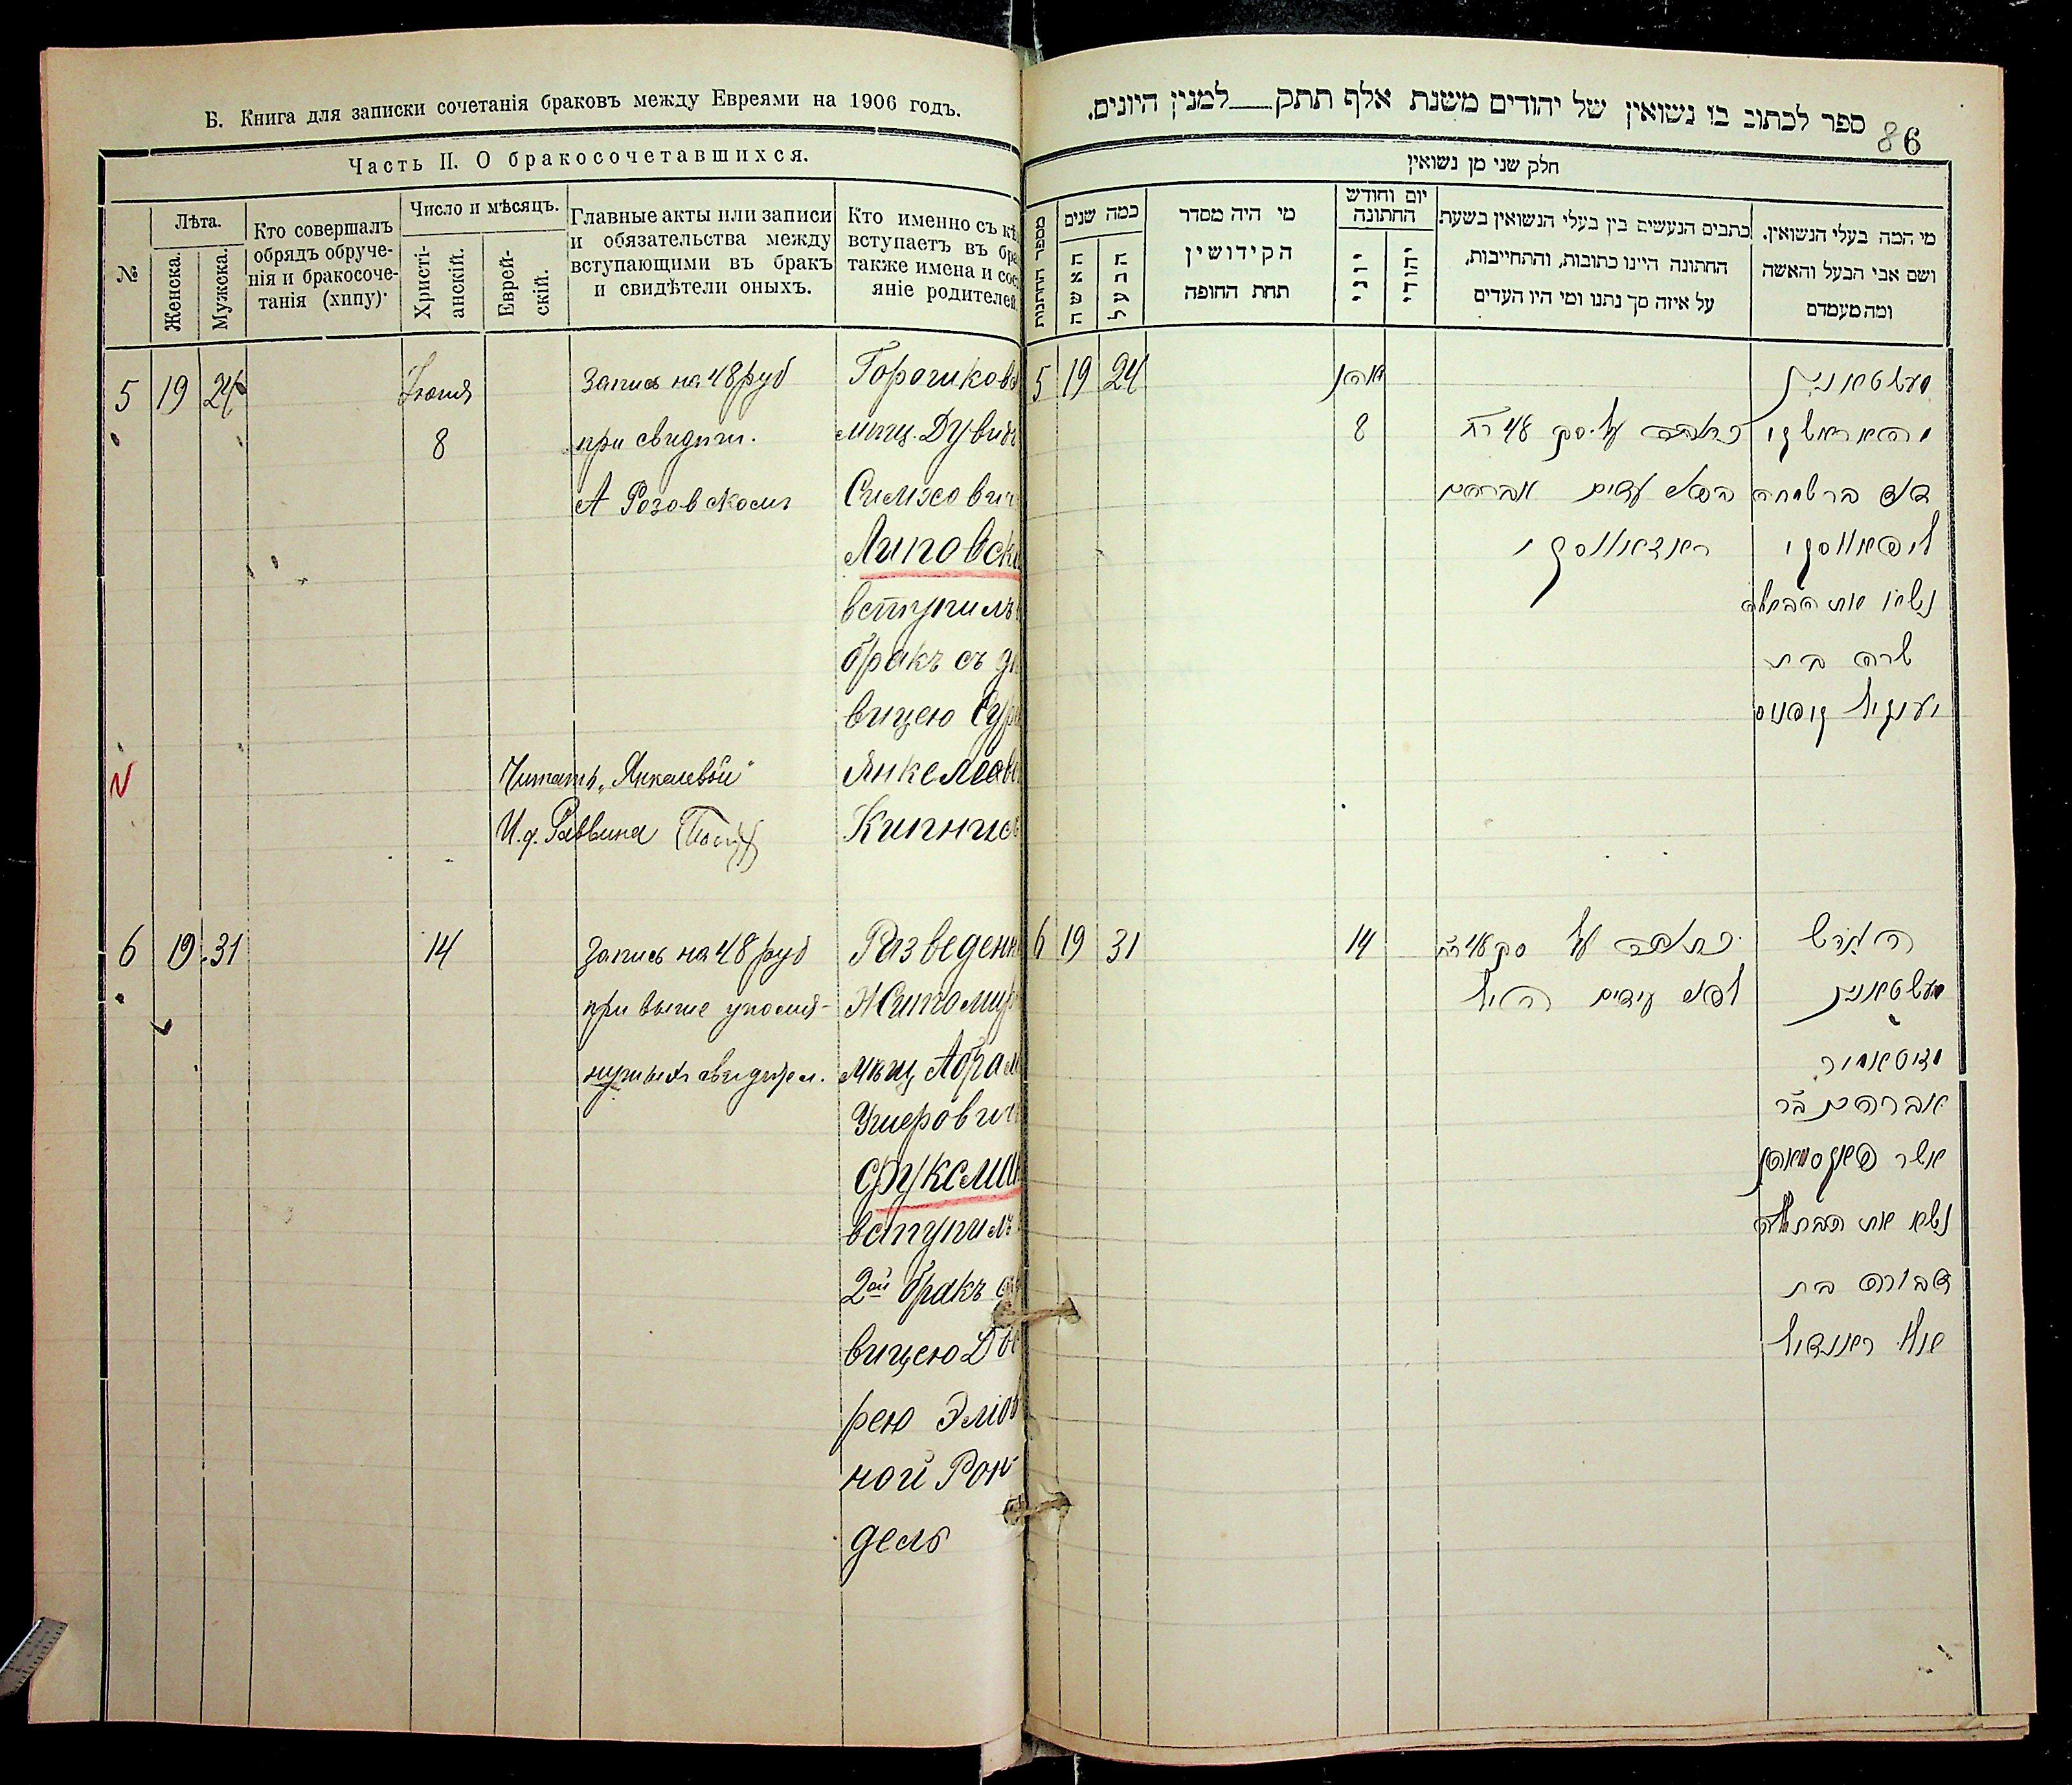 Б. Книга для записки сочетанія браковъ между Евреями на 1906 годъ.
Часть II. О бракосочетавшихся.
№
Лѣта.
Женска.
Мужска.
Кто совершалъ
обрядъ обруче-
нія и бракосоче-
танія (хипу).
Число и мѣсяцъ.
Христі-
анскій.
Еврей-
скій.
Главные акты или записи
и обязательства между
вступающими въ бракъ
и свидѣтели оныхъ.
Кто именно съ кѣ
вступаетъ въ бра
также имена и сос
яніе родителей
5 19 24
Іюня
8
Запись на 48 руб
при свидѣт.
А Розовскомъ
Горошковс
мѣщ. Дувидъ
Симхович
Липовскі
вступилъ
бракъ съ дѣ
вицею Сур
Янкелев
Кипнис
Читать „Янкелевой"
И. д. Раввина
6 19 31
14
Запись на 48 руб
при выше упомя-
нутыхъ свидѣтел.
Разведенн
Житомир
мѣщ Абрам
Ушерович
Фуксман
вступилъ
2ой бракъ съ
вицею Дво
рею Эліов
ной Рон
дель
86
ספר לכתוב בו נשואין של יהודים משנת אלף תתק למנין היונים.
חלק שני מן נשואין
מספר החתונות
כמה שנים
האשה
הבעל
מי היה מסדר
הקידושין
תחת החופה
יום וחודש
החתונה
יוני
יהודי
כתבים הנעשים בין בעלי הנשואין בשעת
החתונה היינו כתובות, והתחייבות,
על איזה סך נתנו ומי היו העדים
מי המה בעלי הנשואין.
ושם אבי הבעל והאשה
ומה מעמדם
5 19 24
8
כתובה על סך 48 רח
בפני עדים אברהם
מעשטשאנין
דוד בר שמחה
ליפאווסקי
נשא את הבתולה
שרה בת
יענקיל קיפניס
6 19 31
14
כתובה על סך 48 רח
לפני עידים הנ״ל
הגרוש
מעשטשאנין
זיטאמיר
אברהם בר
אשר פוקסמאן
נשא את הבתולה
דבורה בת
אלי ראנדיל